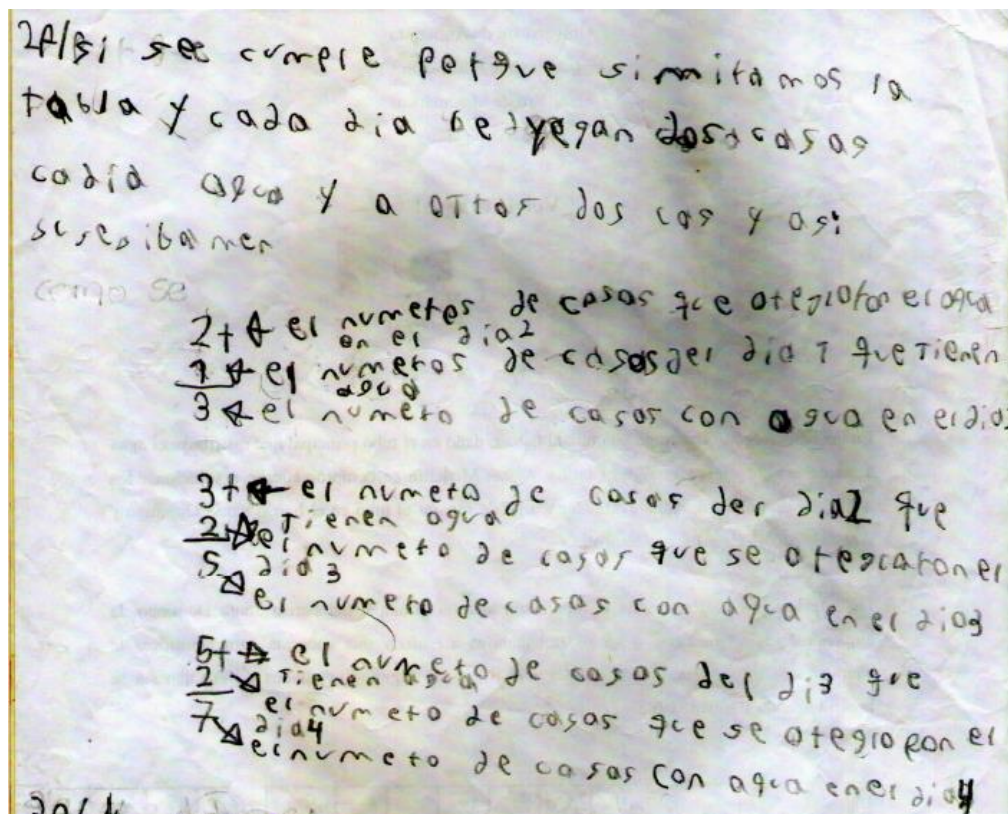 si see cumple porque simiramos la
tabla y cada dia le lyegan dosa casas
cadia agua y a otros dos cas y asi
como se
2+ ← el numeros de casas que aregraron el agua
en el dia2
1 ← el numeros de casas del dia 1 que tienen
agua
3 ← el numero de casas con agua en el dia
3+ ← el numero de casas der dia2 que
2 → Tienen agua
el numero de casas que se aregraron el
5 → dia 3
el numero de casas con agua en el dia3
5+ → el numero de casas del di3 que
2 → Tienen agua
el numero de casas que se aregraron el
7 dia4
→ el numero de casas con agua en el dia4